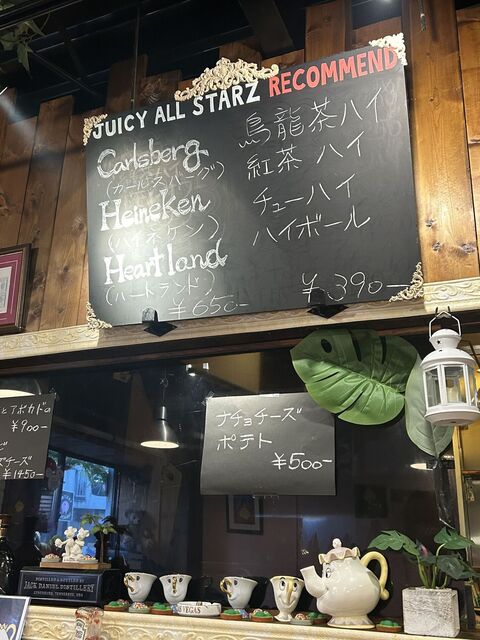 JUICY ALL STARZ RECOMMEND
Carlsberg
(カールスバーグ)
Heineken
(ハイネケン)
Heartland
(ハートランド)
¥650-
烏龍茶ハイ
紅茶 ハイ
チューハイ
ハイボール
¥390-
とアボカドの
¥900-
チーズ
¥1450-
ナチョチーズ
ポテト
¥500-
JACK DANIEL DISTILLERY
VEGAS